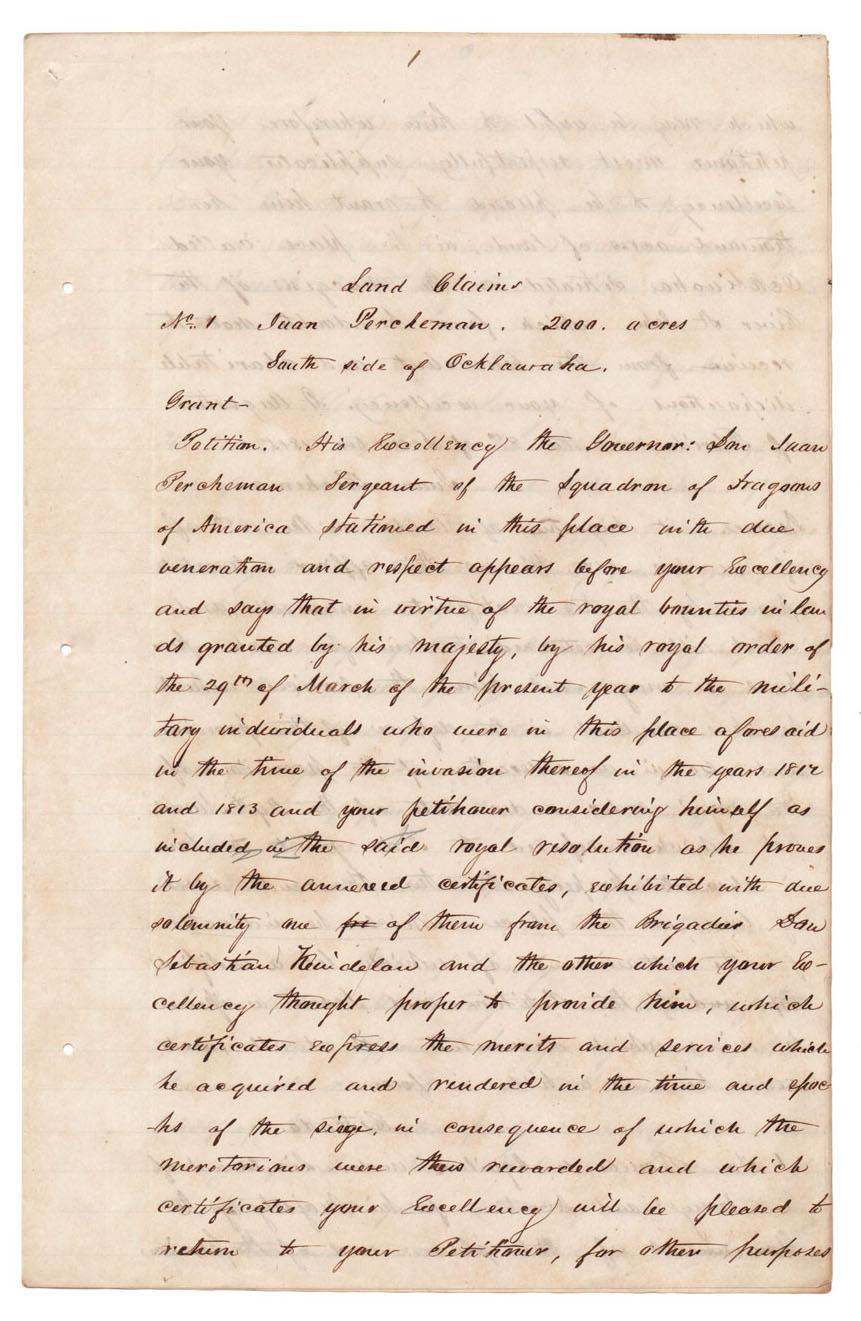 1
Land Claims
No. 1 Juan Percheman. 2000. acres
South side of Ocklawaha.
Grant-
Petition. His Excellency the Governor: Don Juan
Percheman Sergeant of the Squadron of Dragoons
of America stationed in this place with due
veneration and respect appears before your Excellency
and says that in virtue of the royal bounties in lan
ds granted by his majesty, by his royal order of
the 29th of March of the present year to the mili-
tary individuals who were in this place aforesaid
in the time of the invasion thereof in the years 1812
and 1813 and your petitioner considering himself as
included in the said royal resolution as he proves
it by the annexed certificates, exhibited with due
solemnity one of them from the Brigadier Don
Sebastian Kindelan and the other which your Ex-
cellency thought proper to provide him, which
certificates express the merits and services which
he acquired and rendered in the time and epoc
-hs of the siege. in consequence of which the
meritorious were thus rewarded and which
certificates your Excellency will be pleased to
return to your Petitioner, for other purposes